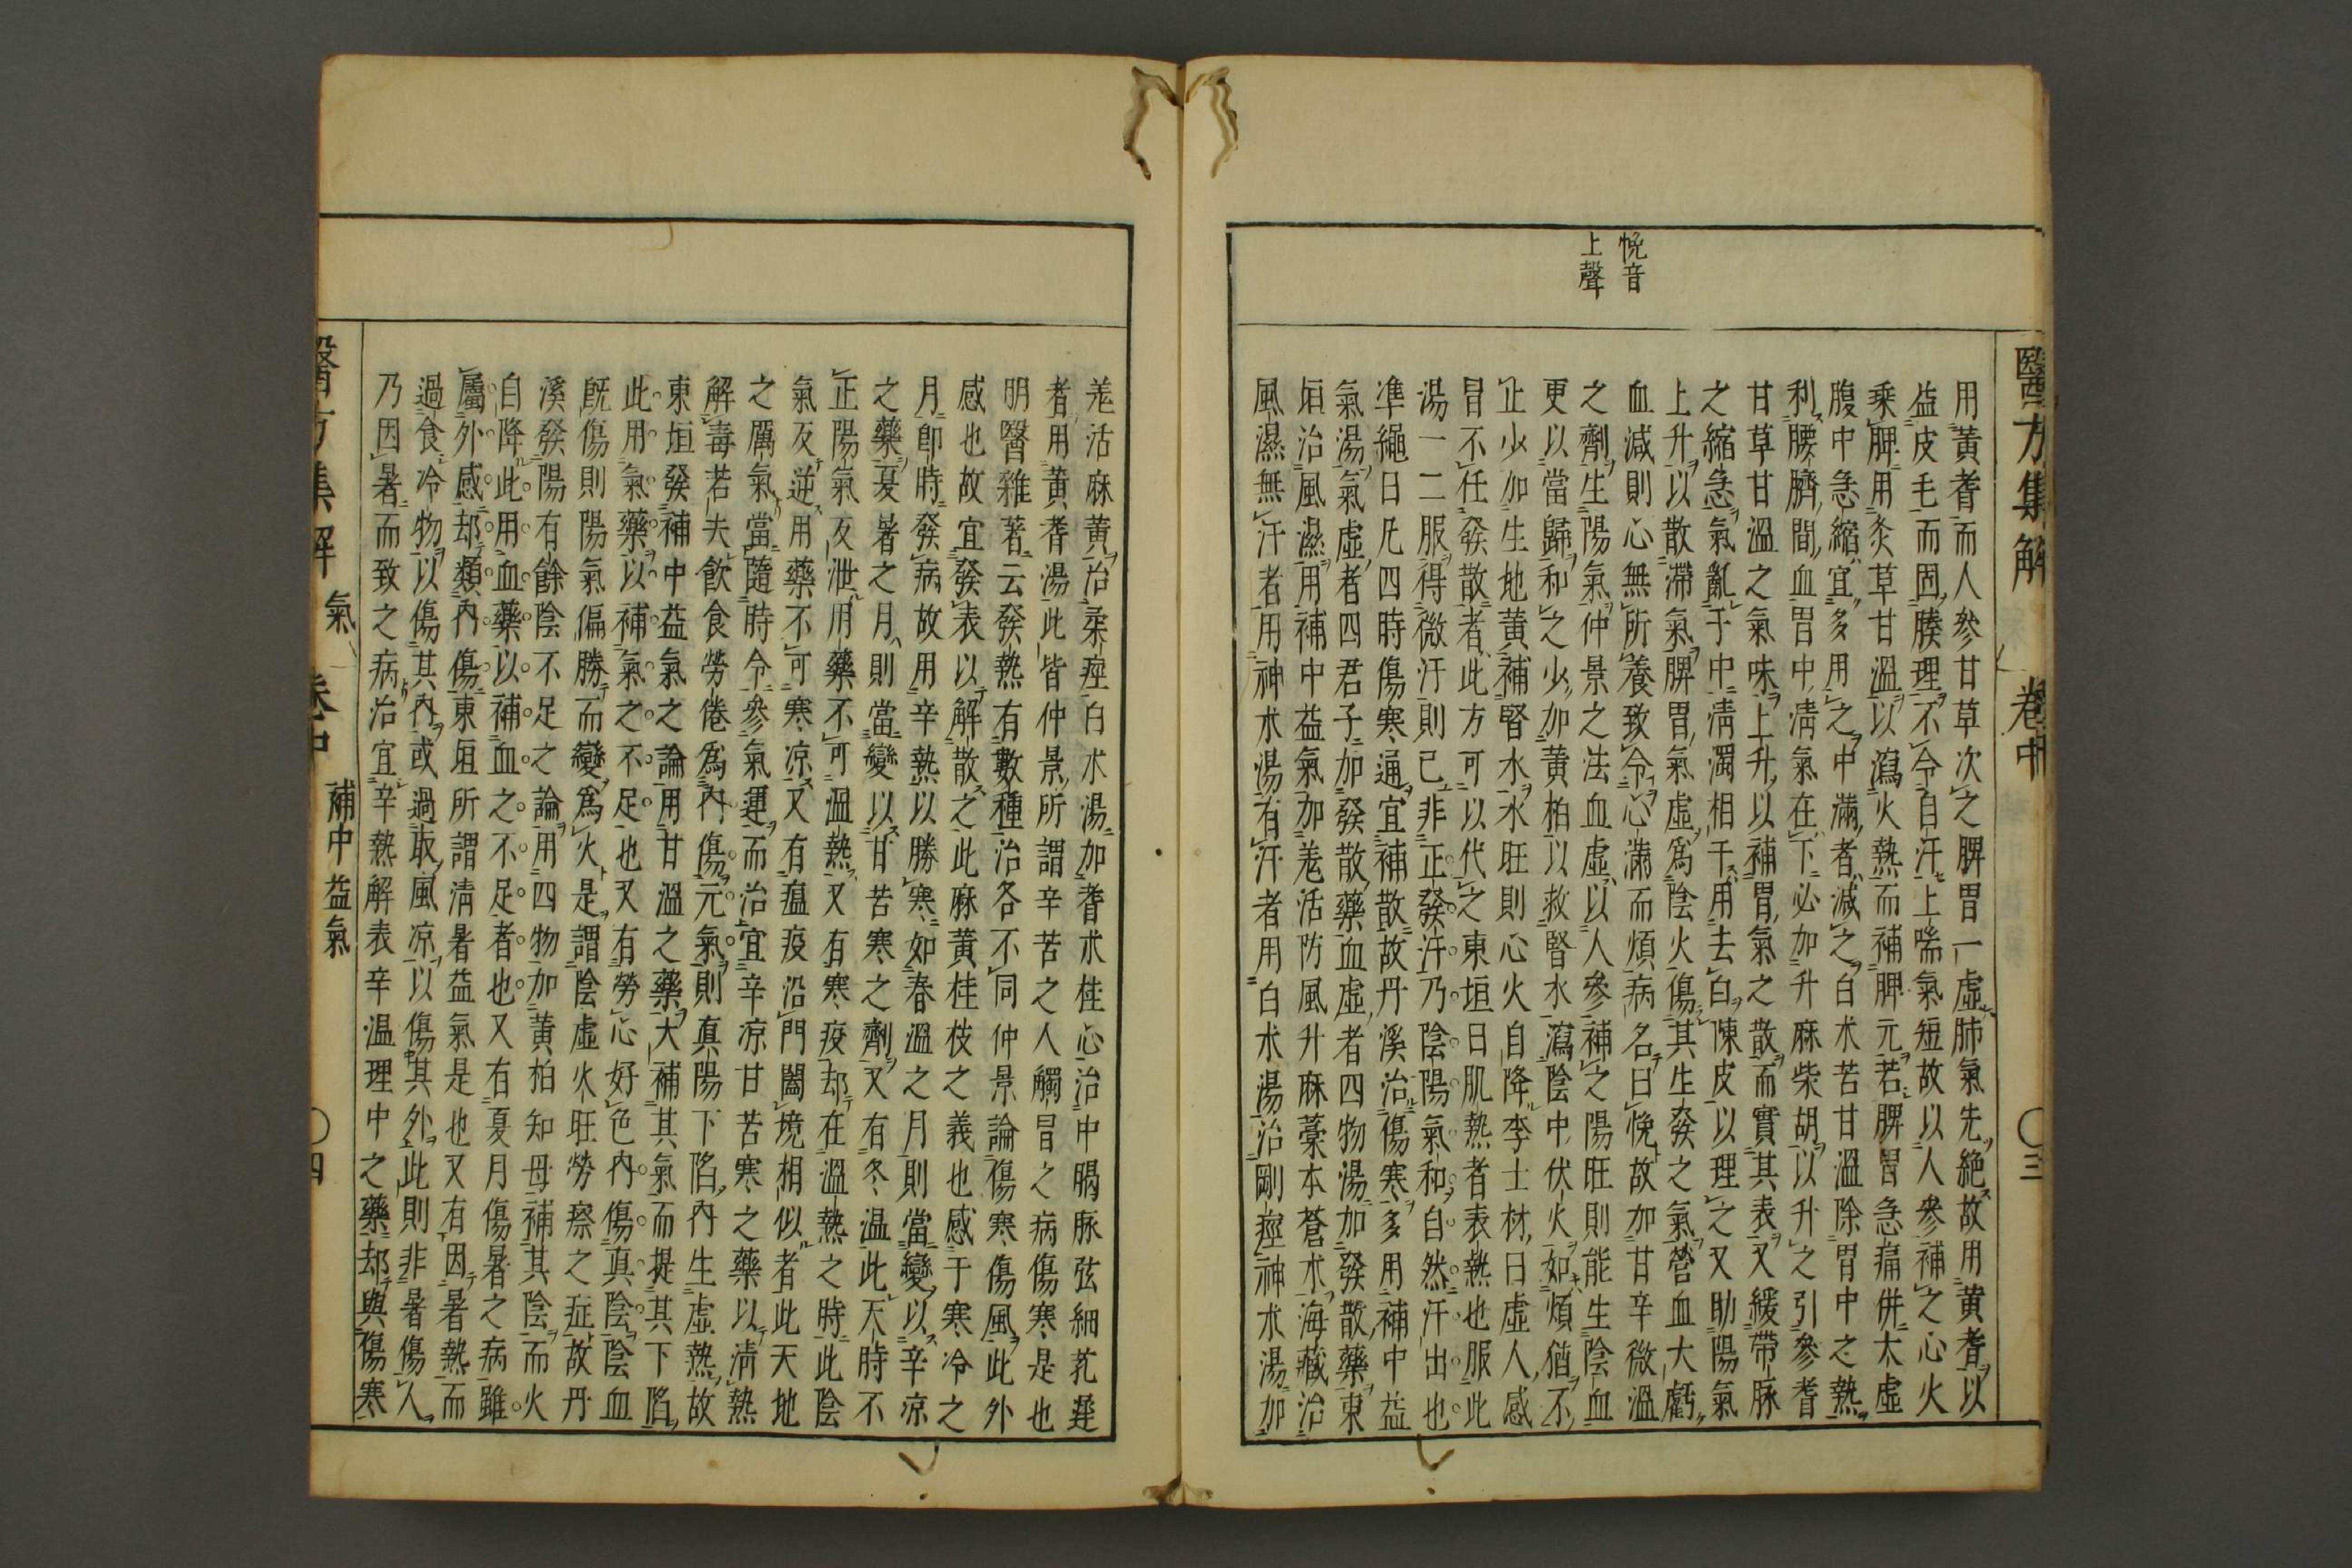 醫方集解
卷中
〇三
悗音
上聲
用黃耆而人參甘草次之脾胃一虛肺氣先絕故用黃耆以
益皮毛而固腠理不令自汗上喘氣短故以人參補之心火
乘脾用炙草甘溫以瀉火熱而補脾元若脾胃急痛併太虛
腹中急縮宜多用之中滿者減之白朮苦甘溫除胃中之熱
利腰臍間血胃中清氣在下必加升麻柴胡以升之引參耆
甘草甘溫之氣味上升以補胃氣之散而實其表又緩帶脉
之縮急氣亂于中清濁相干用去白陳皮以理之又助陽氣
上升以散滯氣脾胃氣虛為陰火傷其生發之氣營血大虧
血減則心無所養致令心滿而煩病名曰悗故加甘辛微溫
之劑生陽氣仲景之法血虛以人參補之陽旺則能生陰血
更以當歸和之少加黃柏以救腎水瀉陰中伏火如煩猶不
止少加生地黃補腎水水旺則心火自降李士材曰虛人感
冒不任發散者此方可以代之東垣曰肌熱者表熱也服此
湯一二服得微汗則已非正發汗乃陰陽氣和自然汗出也
凖繩曰凡四時傷寒通宜補散故丹溪治傷寒多用補中益
氣湯氣虛者四君子加發散藥血虛者四物湯加發散藥東
垣治風濕用補中益氣加羗活防風升麻藁本蒼朮海藏治
風濕無汗者用神朮湯有汗者用白朮湯治剛痙神朮湯加
羗活麻黃治柔痙白朮湯加耆朮桂心治中暍脉弦細芤遲
者用黃耆湯此皆仲景所謂辛苦之人觸冒之病傷寒是也
明醫雜著云發熱有數種治各不同仲景論傷寒傷風此外
感也故宜發表以解散之此麻黃桂枝之義也感于寒冷之
月即時發病故用辛熱以勝寒如春溫之月則當變以辛凉
之藥夏暑之月則當變以甘苦寒之劑又有冬温此天時不
正陽氣反泄用藥不可溫熱又有寒疫却在溫熱之時此陰
氣反逆用藥不可寒凉又有瘟疫沿門闔境相似者此天地
之厲氣當隨時令參氣運而治宜辛凉甘苦寒之藥以清熱
解毒若夫飲食勞倦為內傷元氣則真陽下陷內生虛熱故
東垣發補中益氣之論用甘溫之藥大補其氣而提其下陷
此用氣藥以補氣之不足也又有勞心好色內傷真陰陰血
既傷則陽氣偏勝而變為火是謂陰虛火旺勞瘵之症故丹
溪發陽有餘陰不足之論用四物加黃柏知母補其陰而火
自降此用血藥以補血之不足者也又有夏月傷暑之病雖
屬外感却類內傷東垣所謂清暑益氣是也又有因暑熱而
過食冷物以傷其內或過取風凉以傷其外此則非暑傷人
乃因暑而致之病治宜辛熱解表辛温理中之藥却與傷寒
醫方集解
氣
卷中
補中益氣
〇四